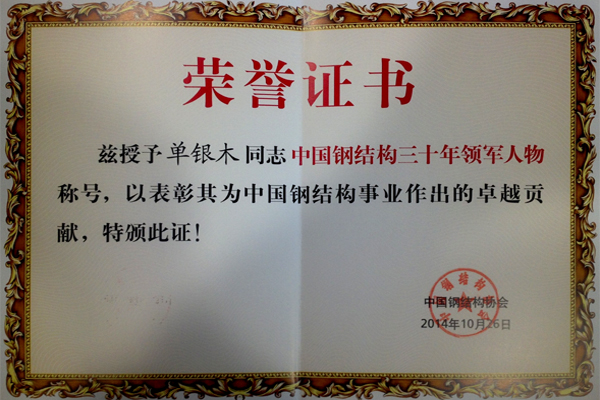 荣誉证书
兹授予单银木同志中国钢结构三十年领军人物
称号，以表彰其为中国钢结构事业作出的卓越贡
献，特颁此证！
中国钢结构协会
2014年10月26日